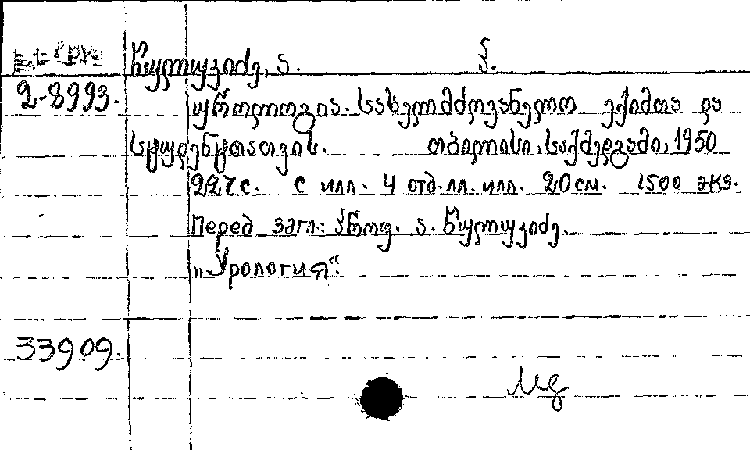 წულუკიძე, ა.
2-8993. უროლოგია. სახელმძღვანელო ექიმთა და
სტუდენტთათვის. თბილისი, საქმედგამი, 1950
227 с. с илл. 4 отд. лл. илл. 20 см. 1500 экз.
Перед загл: პროფ. ა. წულუკიძე.
„Урология“.
33909.